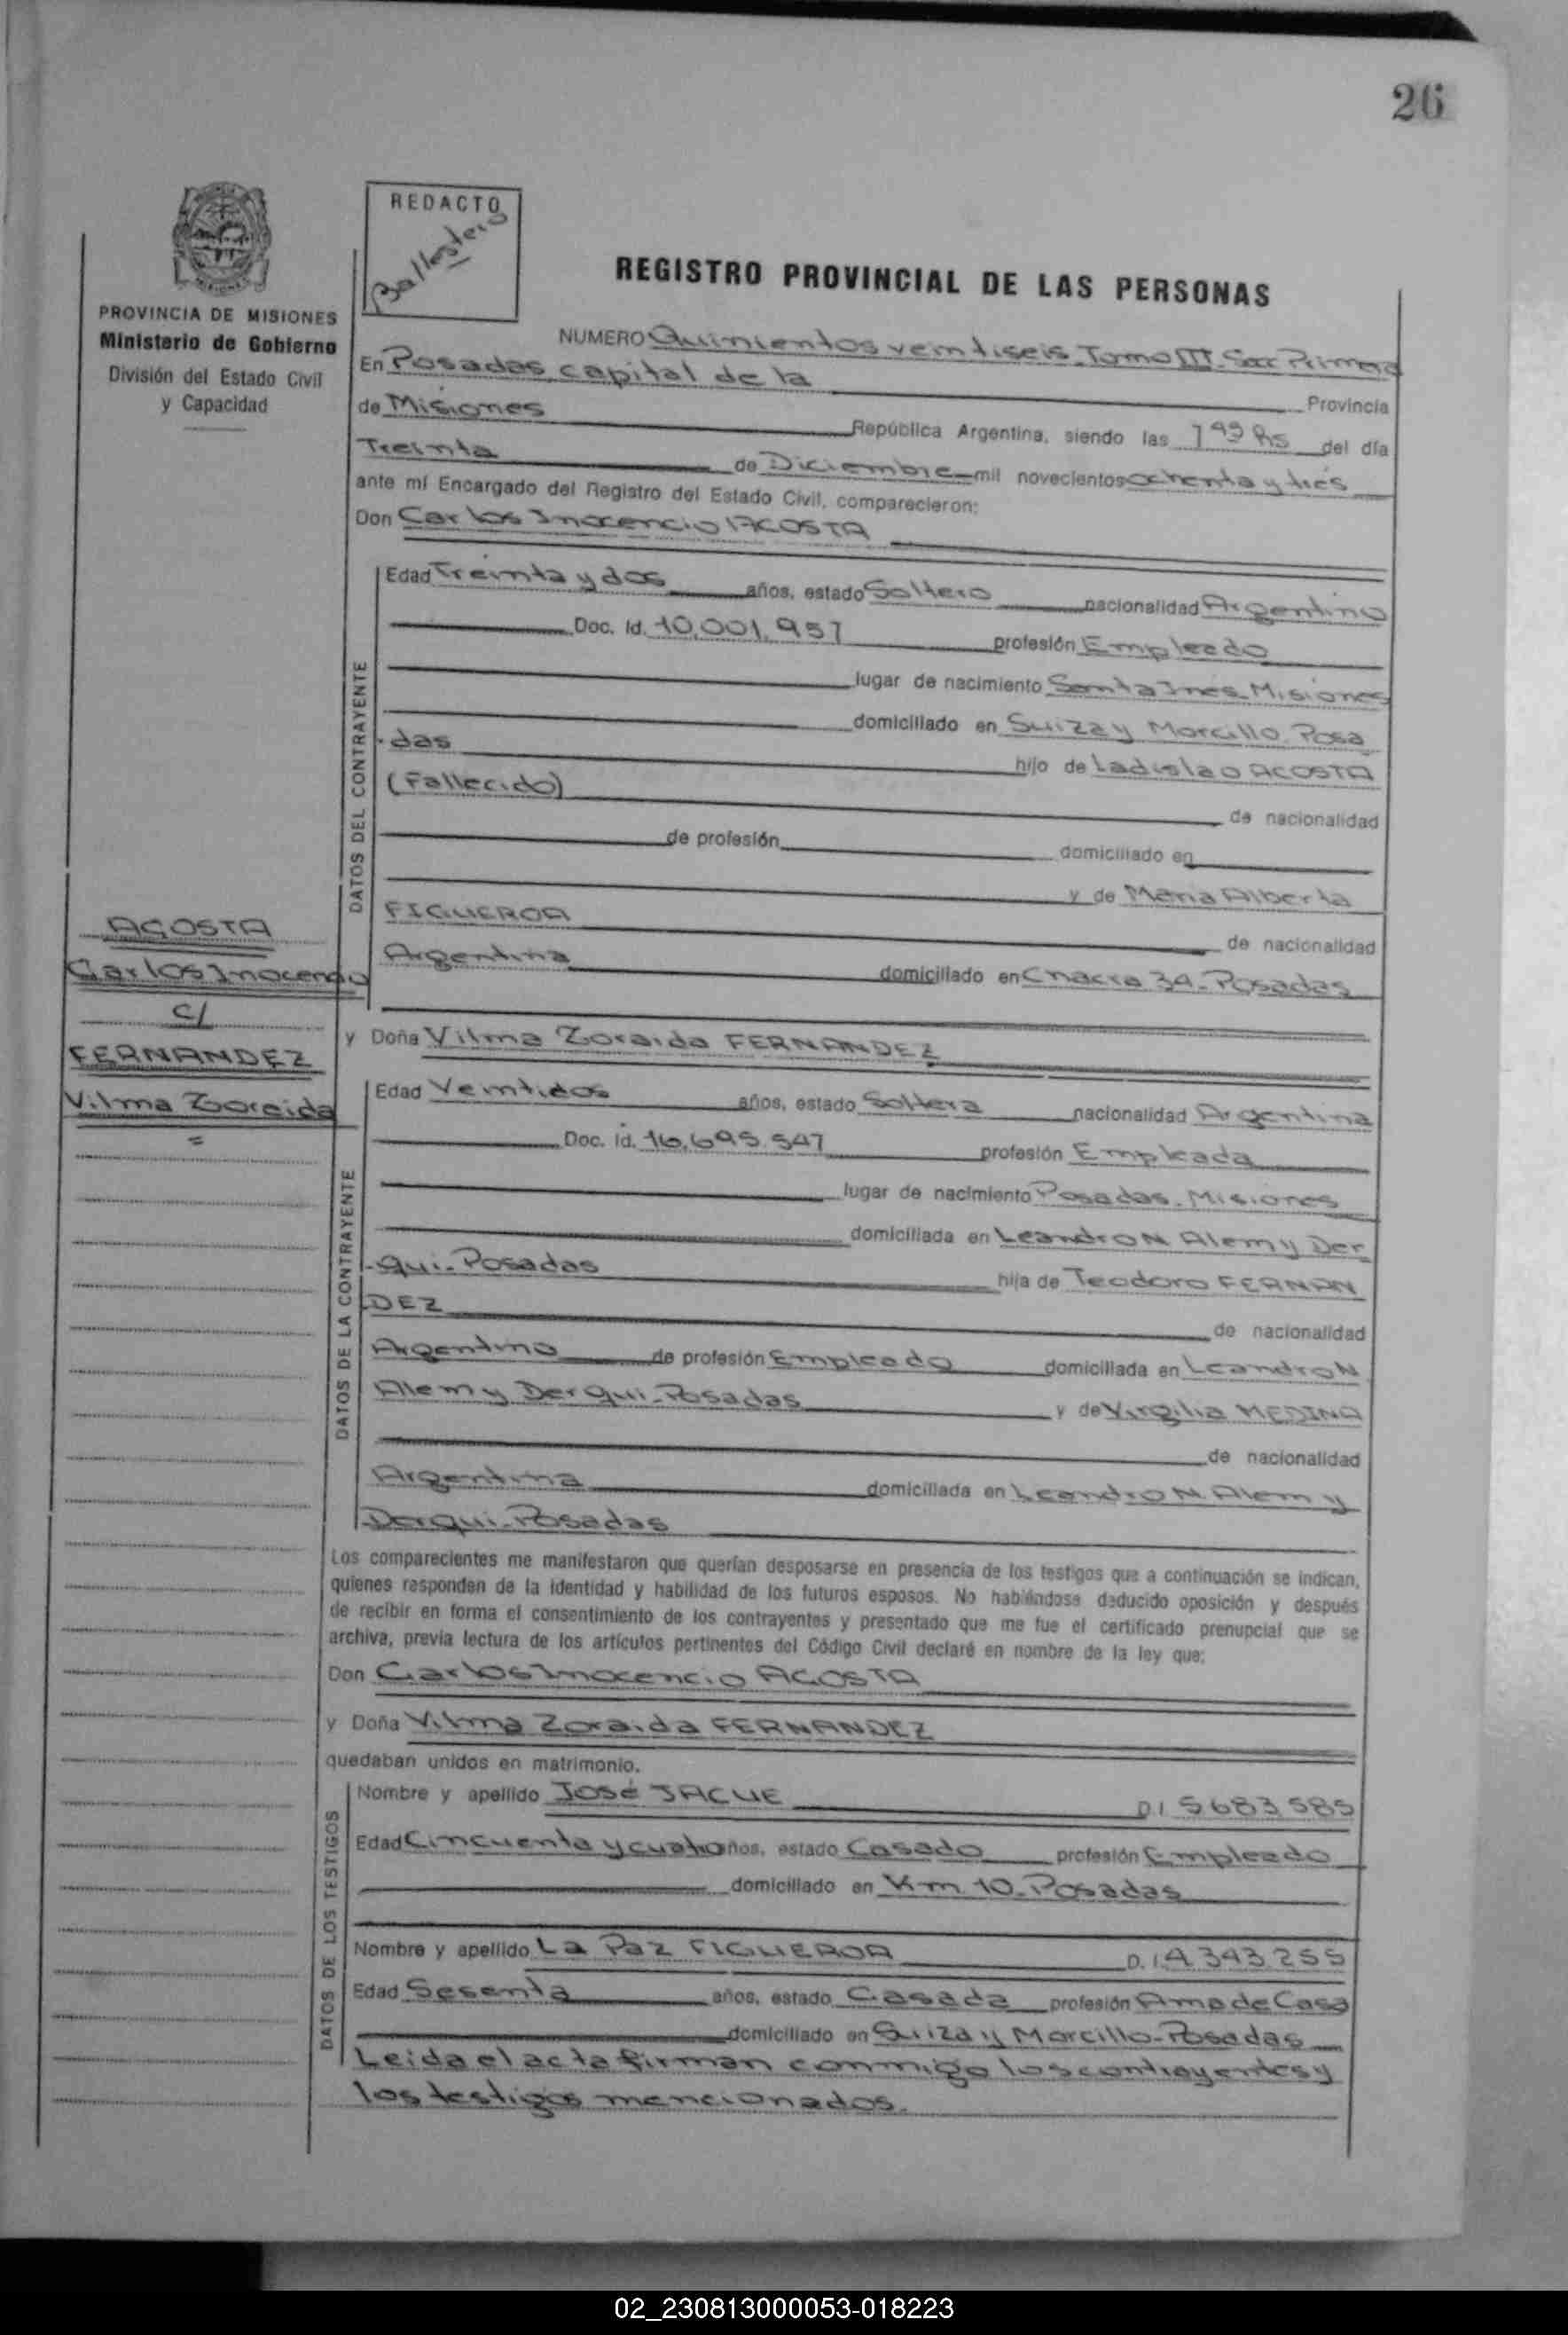 26
REDACTO
Ballestero
REGISTRO PROVINCIAL DE LAS PERSONAS
PROVINCIA DE MISIONES
Ministerio de Gobierno
División del Estado Civil
y Capacidad
NUMERO Quinientos veintiseis Tomo III Sec Primera
En Posadas, capital de la Provincia
de Misiones República Argentina, siendo las hs del día
Treinta de Diciembre mil novecientos ochenta y tres
ante mí Encargado del Registro del Estado Civil, comparecieron:
Don Carlos Inocencio ACOSTA
DATOS DEL CONTRAYENTE
Edad Treinta y dos años, estado Soltero nacionalidad Argentino
Doc. Id. 10.001.957 profesión Empleado
lugar de nacimiento Santa Ines Misiones
domiciliado en Suiza y Morcillo Posa
das hijo de Ladislao ACOSTA
(Fallecido) de nacionalidad
de profesión domiciliado en
y de Maria Alberta
FIGUEROA de nacionalidad
Argentina domiciliado en Chacra 34 - Posadas
ACOSTA
Carlos Inocencio
c/
FERNANDEZ
Vilma Zoraida
=
y Doña Vilma Zoraida FERNANDEZ
DATOS DE LA CONTRAYENTE
Edad Veintidos años, estado Soltera nacionalidad Argentina
Doc. id. 16.695.547 profesión Empleada
lugar de nacimiento Posadas - Misiones
domiciliada en Leandro N Alem y Der
qui - Posadas hija de Teodoro FERNAN
DEZ de nacionalidad
Argentino de profesión Empleado domiciliada en Leandro N
Alem y Derqui - Posadas y de Virgilia MEDINA
de nacionalidad
Argentina domiciliada en Leandro N. Alem y
Derqui - Posadas
Los comparecientes me manifestaron que querían desposarse en presencia de los testigos que a continuación se indican,
quienes responden de la identidad y habilidad de los futuros esposos. No habiéndose deducido oposición y después
de recibir en forma el consentimiento de los contrayentes y presentado que me fue el certificado prenupcial que se
archiva, previa lectura de los artículos pertinentes del Código Civil declaré en nombre de la ley que:
Don Carlos Inocencio ACOSTA
y Doña Vilma Zoraida FERNANDEZ
quedaban unidos en matrimonio.
DATOS DE LOS TESTIGOS
Nombre y apellido José JACUE D.I 5683585
Edad Cincuenta y cuatro años, estado Casado profesión Empleado
domiciliado en Km 10 - Posadas
Nombre y apellido La Paz FIGUEROA D.I. 4.343.255
Edad Sesenta años, estado Casada profesión Ama de Casa
domiciliado en Suiza y Morcillo - Posadas
Leida el acta firman conmigo los contrayentes y
los testigos mencionados.
02_230813000053-018223